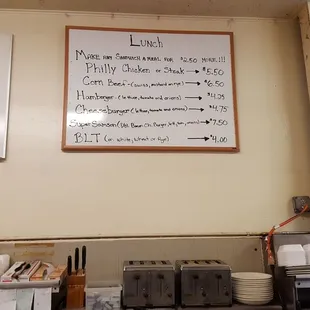 Lunch
Make any Sandwich a meal for $2.50 more!!!
Philly Chicken or Steak → $5.50
Corn Beef - (swiss, mustard on rye) → $6.50
Hamburger - (lettuce, tomato and onions) → $4.25
Cheeseburger (lettuce, tomato and onions) → $4.75
Super Samson → $7.50
BLT (on white, wheat or rye) → $4.00